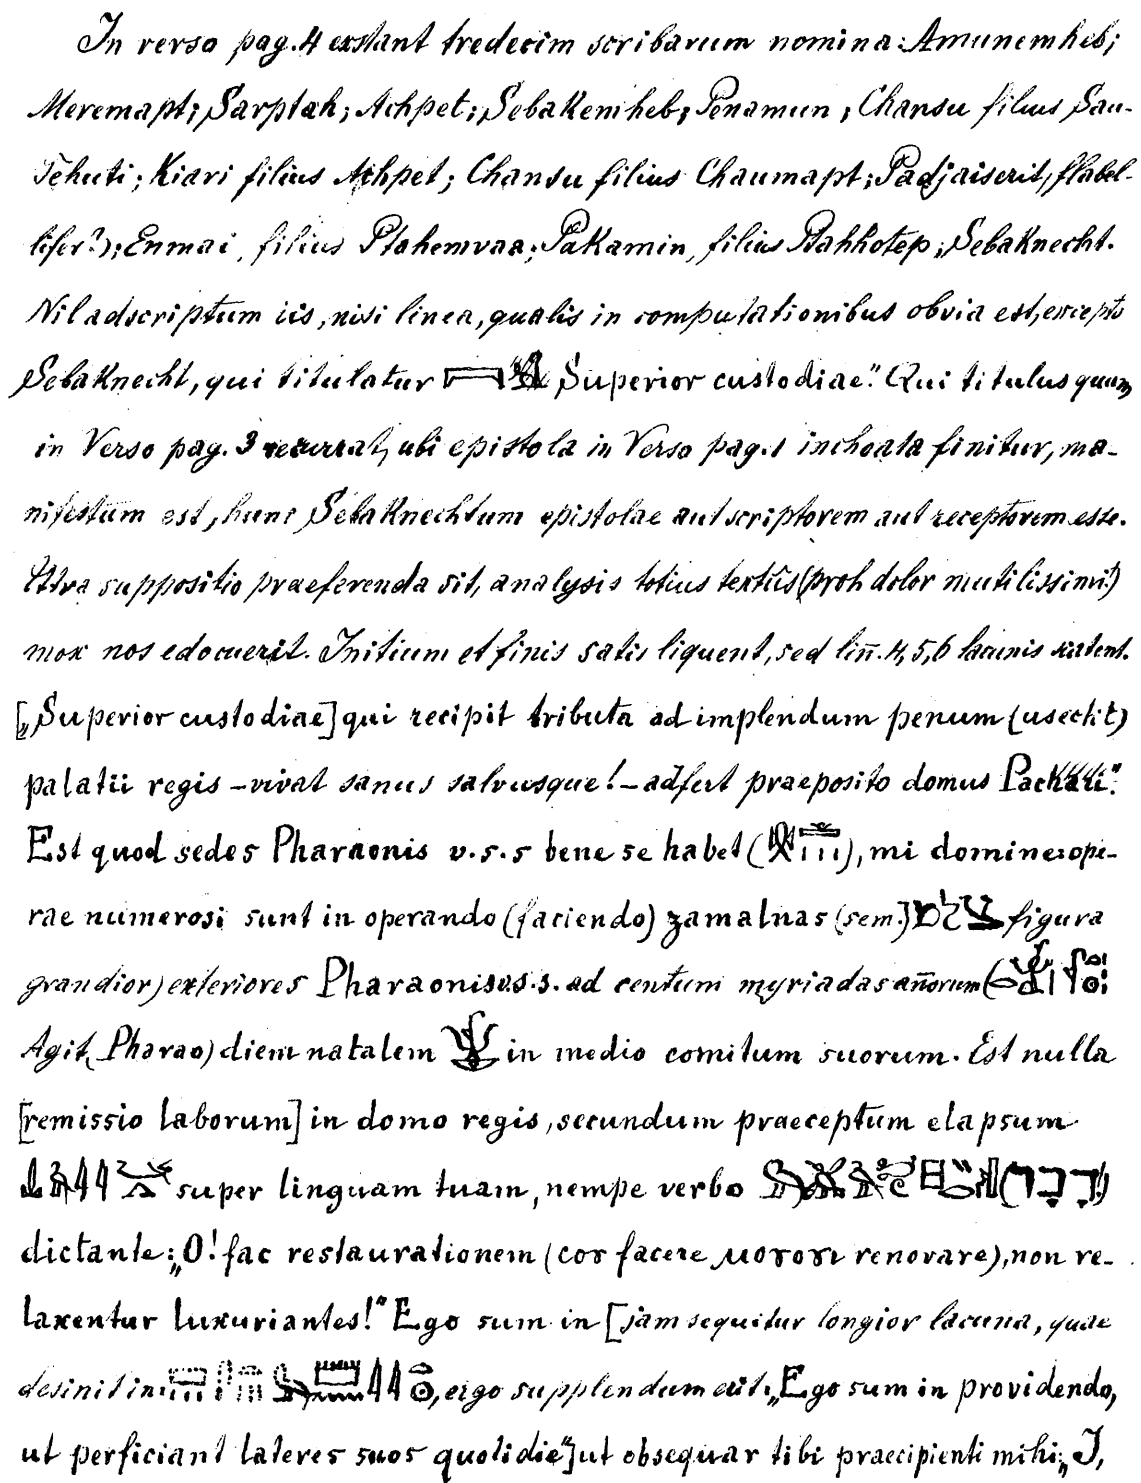 In verso pag. 4 exstant tredecim scribarum nomina: Amunemheb;
Meremapt; Sarptah; Achpet; Sebakemheb; Penamun; Chansu filius Sau-
Tehuti; Kiari filius Achpet; Chansu filius Chaumapt; Padjaiserit, flabel-
lifer?); Enmai, filius Ptahemvaa; Pakamin, filius Ptahhotep; Sebaknecht.
Nil adscriptum iis, nisi linea, qualis in computationibus obvia est, excepto
Sebaknecht, qui titulatur Superior custodiae." Qui titulus quum
in Verso pag. 3 recurrat, ubi epistola in Verso pag. 1 inchoata finitur, ma-
nifestum est, hunc Sebaknechtum epistolae aut scriptorem aut receptorem esse.
Utra suppositio praeferenda sit, analysis totius textûs (proh dolor mutilissimi!)
mox nos edocuerit. Initium et finis satis liquent, sed lin̄. 4, 5, 6 lacunis scatent.
[„Superior custodiae] qui recipit tributa ad implendum penum (usecht)
palatii regis – vivat sanus salvusque! – adfert praeposito domus
Est quod sedes Pharaonis v. s. s bene se habet (), mi domine: ope-
rae numerosi sunt in operando (faciendo) zamalnas (sem. figura
grandior) exteriores Pharaonis v. s. s. ad centum myriadas an̄orum (
Agit (Pharao) diem natalem in medio comitum suorum. Est nulla
[remissio laborum] in domo regis, secundum praeceptum elapsum
super linguam tuam, nempe verbo (דבר!)
dictante: „O! fac restaurationem (cor facere renovare), non re-
laxentur luxuriantes!" Ego sum in [jam sequitur longior lacuna, quae
desinit in, ergo supplendum erit: „Ego sum in providendo,
ut perficiant lateres suos quotidie"] ut obsequar tibi praecipienti mihi: „I,